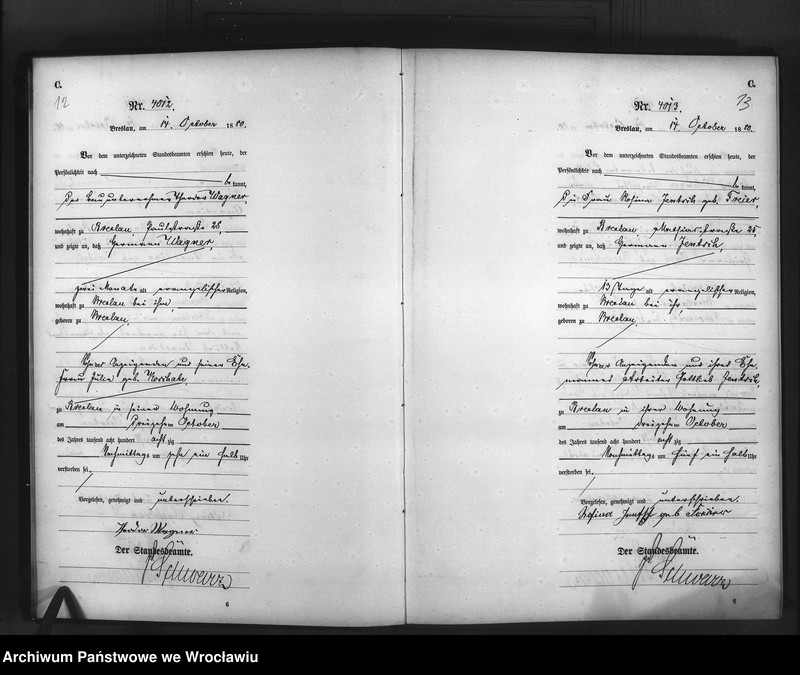 C.
12
Nr. 4012.
Breslau, am 14. October 1880.
Vor dem unterzeichneten Standesbeamten erschien heute, der
Persönlichkeit nach
kannt,
der Bauunternehmer Theodor Wagner,
wohnhaft zu Breslau Paulstraße 28,
und zeigte an, daß Hermann Wagner,
zwei Monate alt evangelischer Religion,
wohnhaft zu Breslau bei ihm,
geboren zu Breslau,
Sohn des Anzeigenden und seiner Ehe-
frau Julie geb.
zu Breslau in seiner Wohnung
am dreizehn October
des Jahres tausend acht hundert achtzig
Nachmittags um zehn ein halb Uhr
verstorben sei.
Vorgelesen, genehmigt und unterschrieben.
Theodor Wagner
Der Standesbeamte.
Schwarz
6
C.
13
Nr. 4013.
Breslau, am 14. October 1880.
Vor dem unterzeichneten Standesbeamten erschien heute, der
Persönlichkeit nach
kannt,
die Frau Rosina Jentsch geb.
wohnhaft zu Breslau, Mathiasstraße
und zeigte an, daß Hermann Jentsch,
13 Tage alt evangelischer Religion,
wohnhaft zu Breslau bei ihr,
geboren zu Breslau,
Sohn der Anzeigenden und ihres Ehe-
mannes Arbeiter Gottlieb Jentsch,
zu Breslau in ihrer Wohnung
am dreizehn October
des Jahres tausend acht hundert achtzig
Nachmittags um fünf ein halb Uhr
verstorben sei.
Vorgelesen, genehmigt und unterschrieben.
Rosina Jentsch geb
Der Standesbeamte.
Schwarz
6
Archiwum Państwowe we Wrocławiu